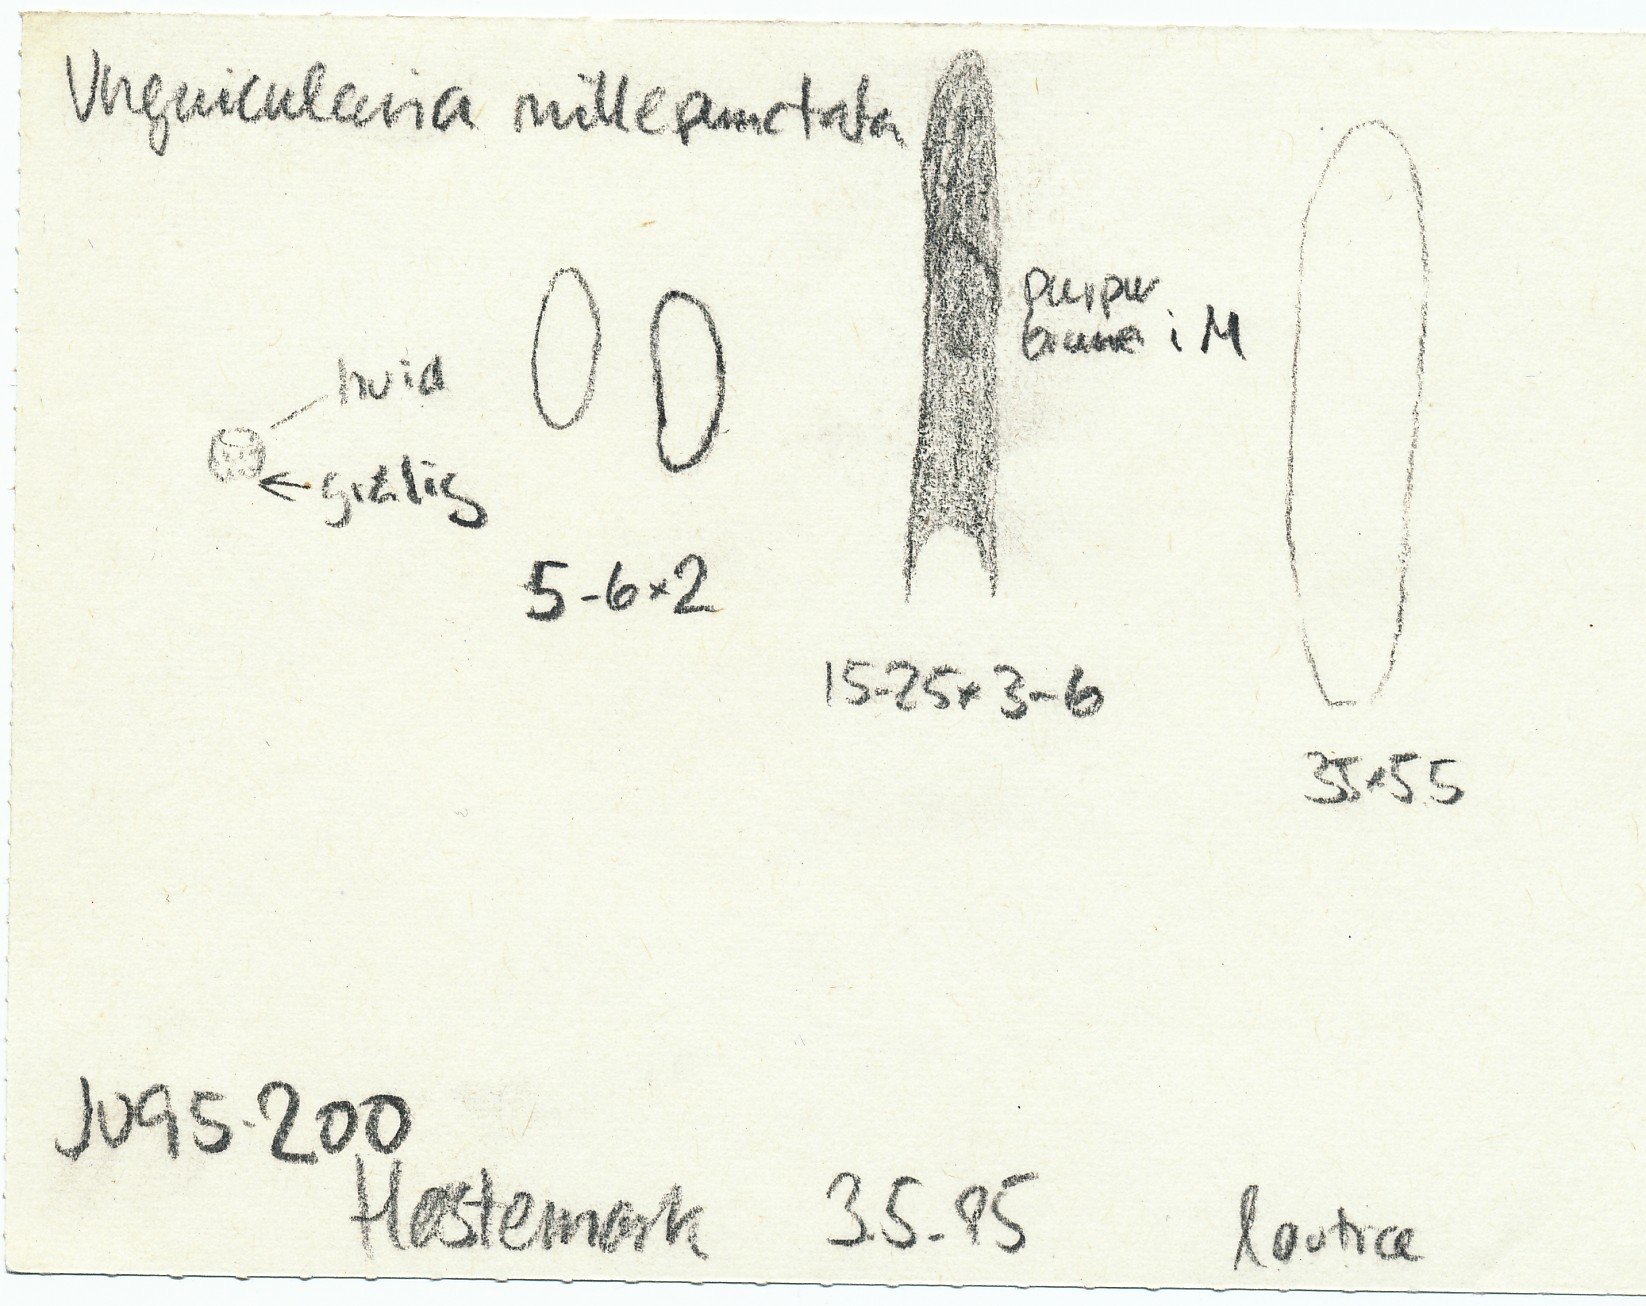 Unguicularia millepunctata
purpur
brune i M
hvid
grålig
5-6×2
15-25×3-6
35×5.5
JV95-200
Høstemark 3.5.-95